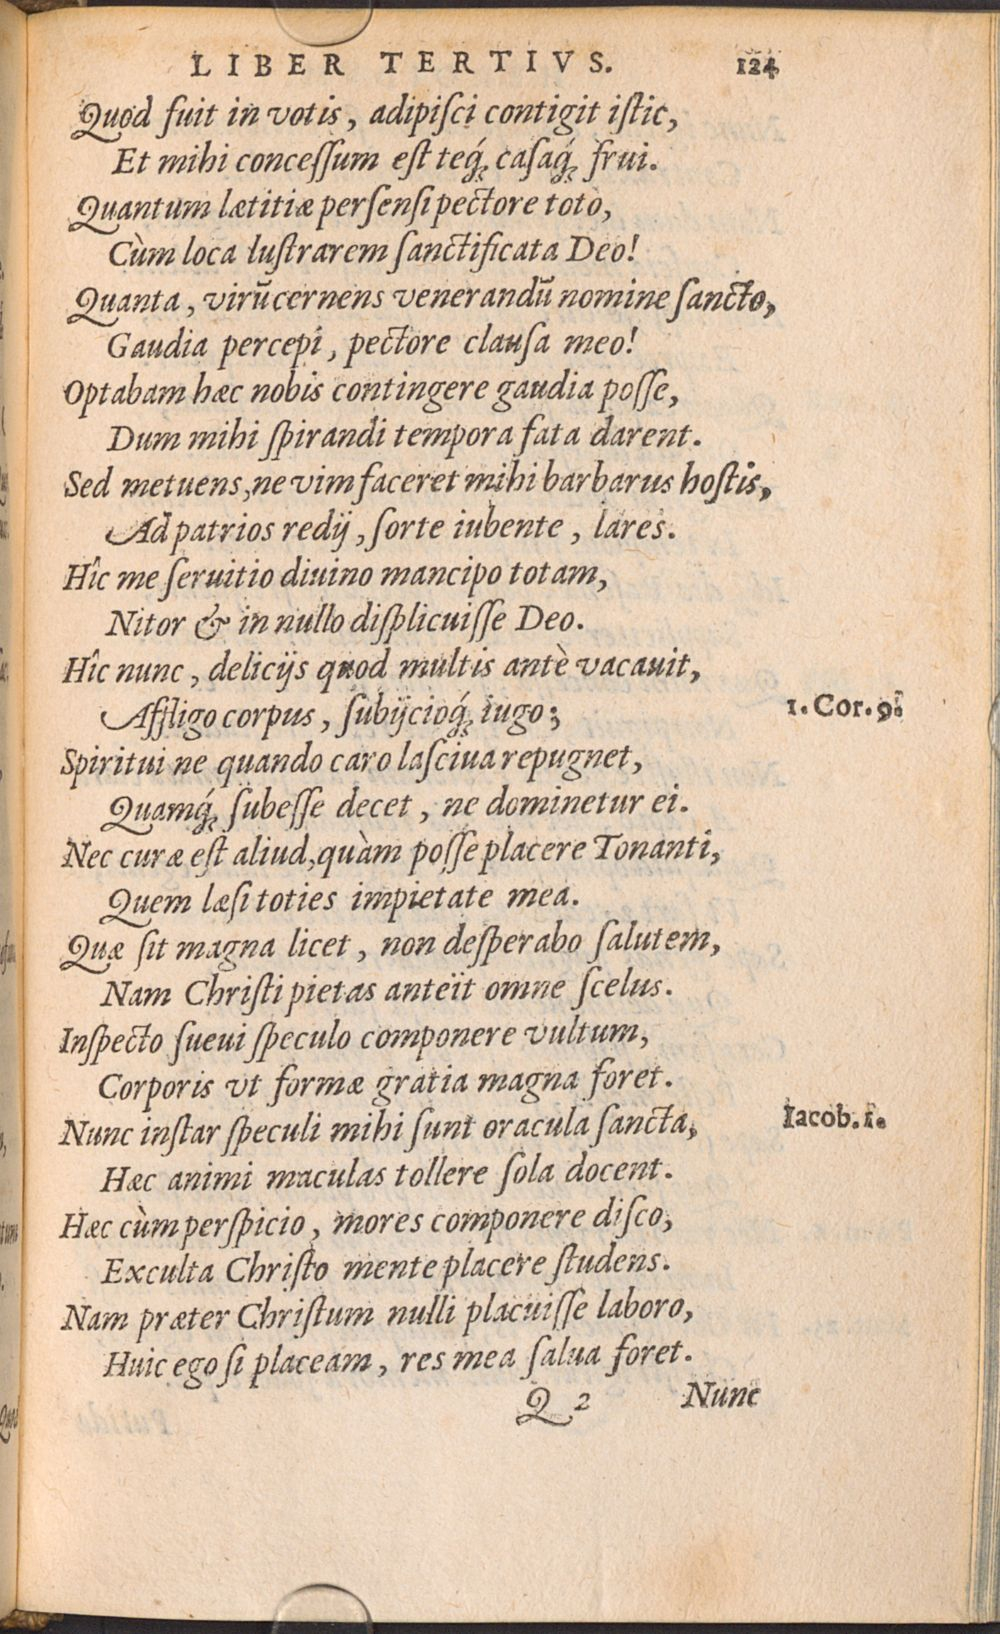 LIBER TERTIVS. 124
Quod fuit in votis, adipiſci contigit iſtic,
Et mihi conceſſum eſt teq́ꝫ caſaq́ꝫ frui.
Quantum lætitiæ perſenſi pectore toto,
Cùm loca luſtrarem ſanctificata Deo!
Quanta, virũ cernens venerandũ nomine ſancto,
Gaudia percepi, pectore clauſa meo!
Optabam hæc nobis contingere gaudia poſſe,
Dum mihi ſpirandi tempora fata darent.
Sed metuens, ne vim faceret mihi barbarus hoſtis,
Ad patrios redij, ſorte iubente, lares.
Hîc me ſeruitio diuino mancipo totam,
Nitor & in nullo diſplicuiſſe Deo.
Hîc nunc, delicijs quod multis antè vacauit,
Affligo corpus, ſubijcioq́ꝫ iugo; 1. Cor. 9.
Spiritui ne quando caro laſciua repugnet,
Quamq́ꝫ ſubeſſe decet, ne dominetur ei.
Nec curæ eſt aliud, quàm poſſe placere Tonanti,
Quem læſi toties impietate mea.
Quæ ſit magna licet, non deſperabo ſalutem,
Nam Chriſti pietas anteït omne ſcelus.
Inſpecto ſueui ſpeculo componere vultum,
Corporis vt formæ gratia magna foret.
Nunc inſtar ſpeculi mihi ſunt oracula ſancta, Iacob. 1.
Hæc animi maculas tollere ſola docent.
Hæc cùm perſpicio, mores componere diſco,
Exculta Chriſto mente placere ſtudens.
Nam præter Chriſtum nulli placuiſſe laboro,
Huic ego ſi placeam, res mea ſalua foret.
Q 2 Nunc